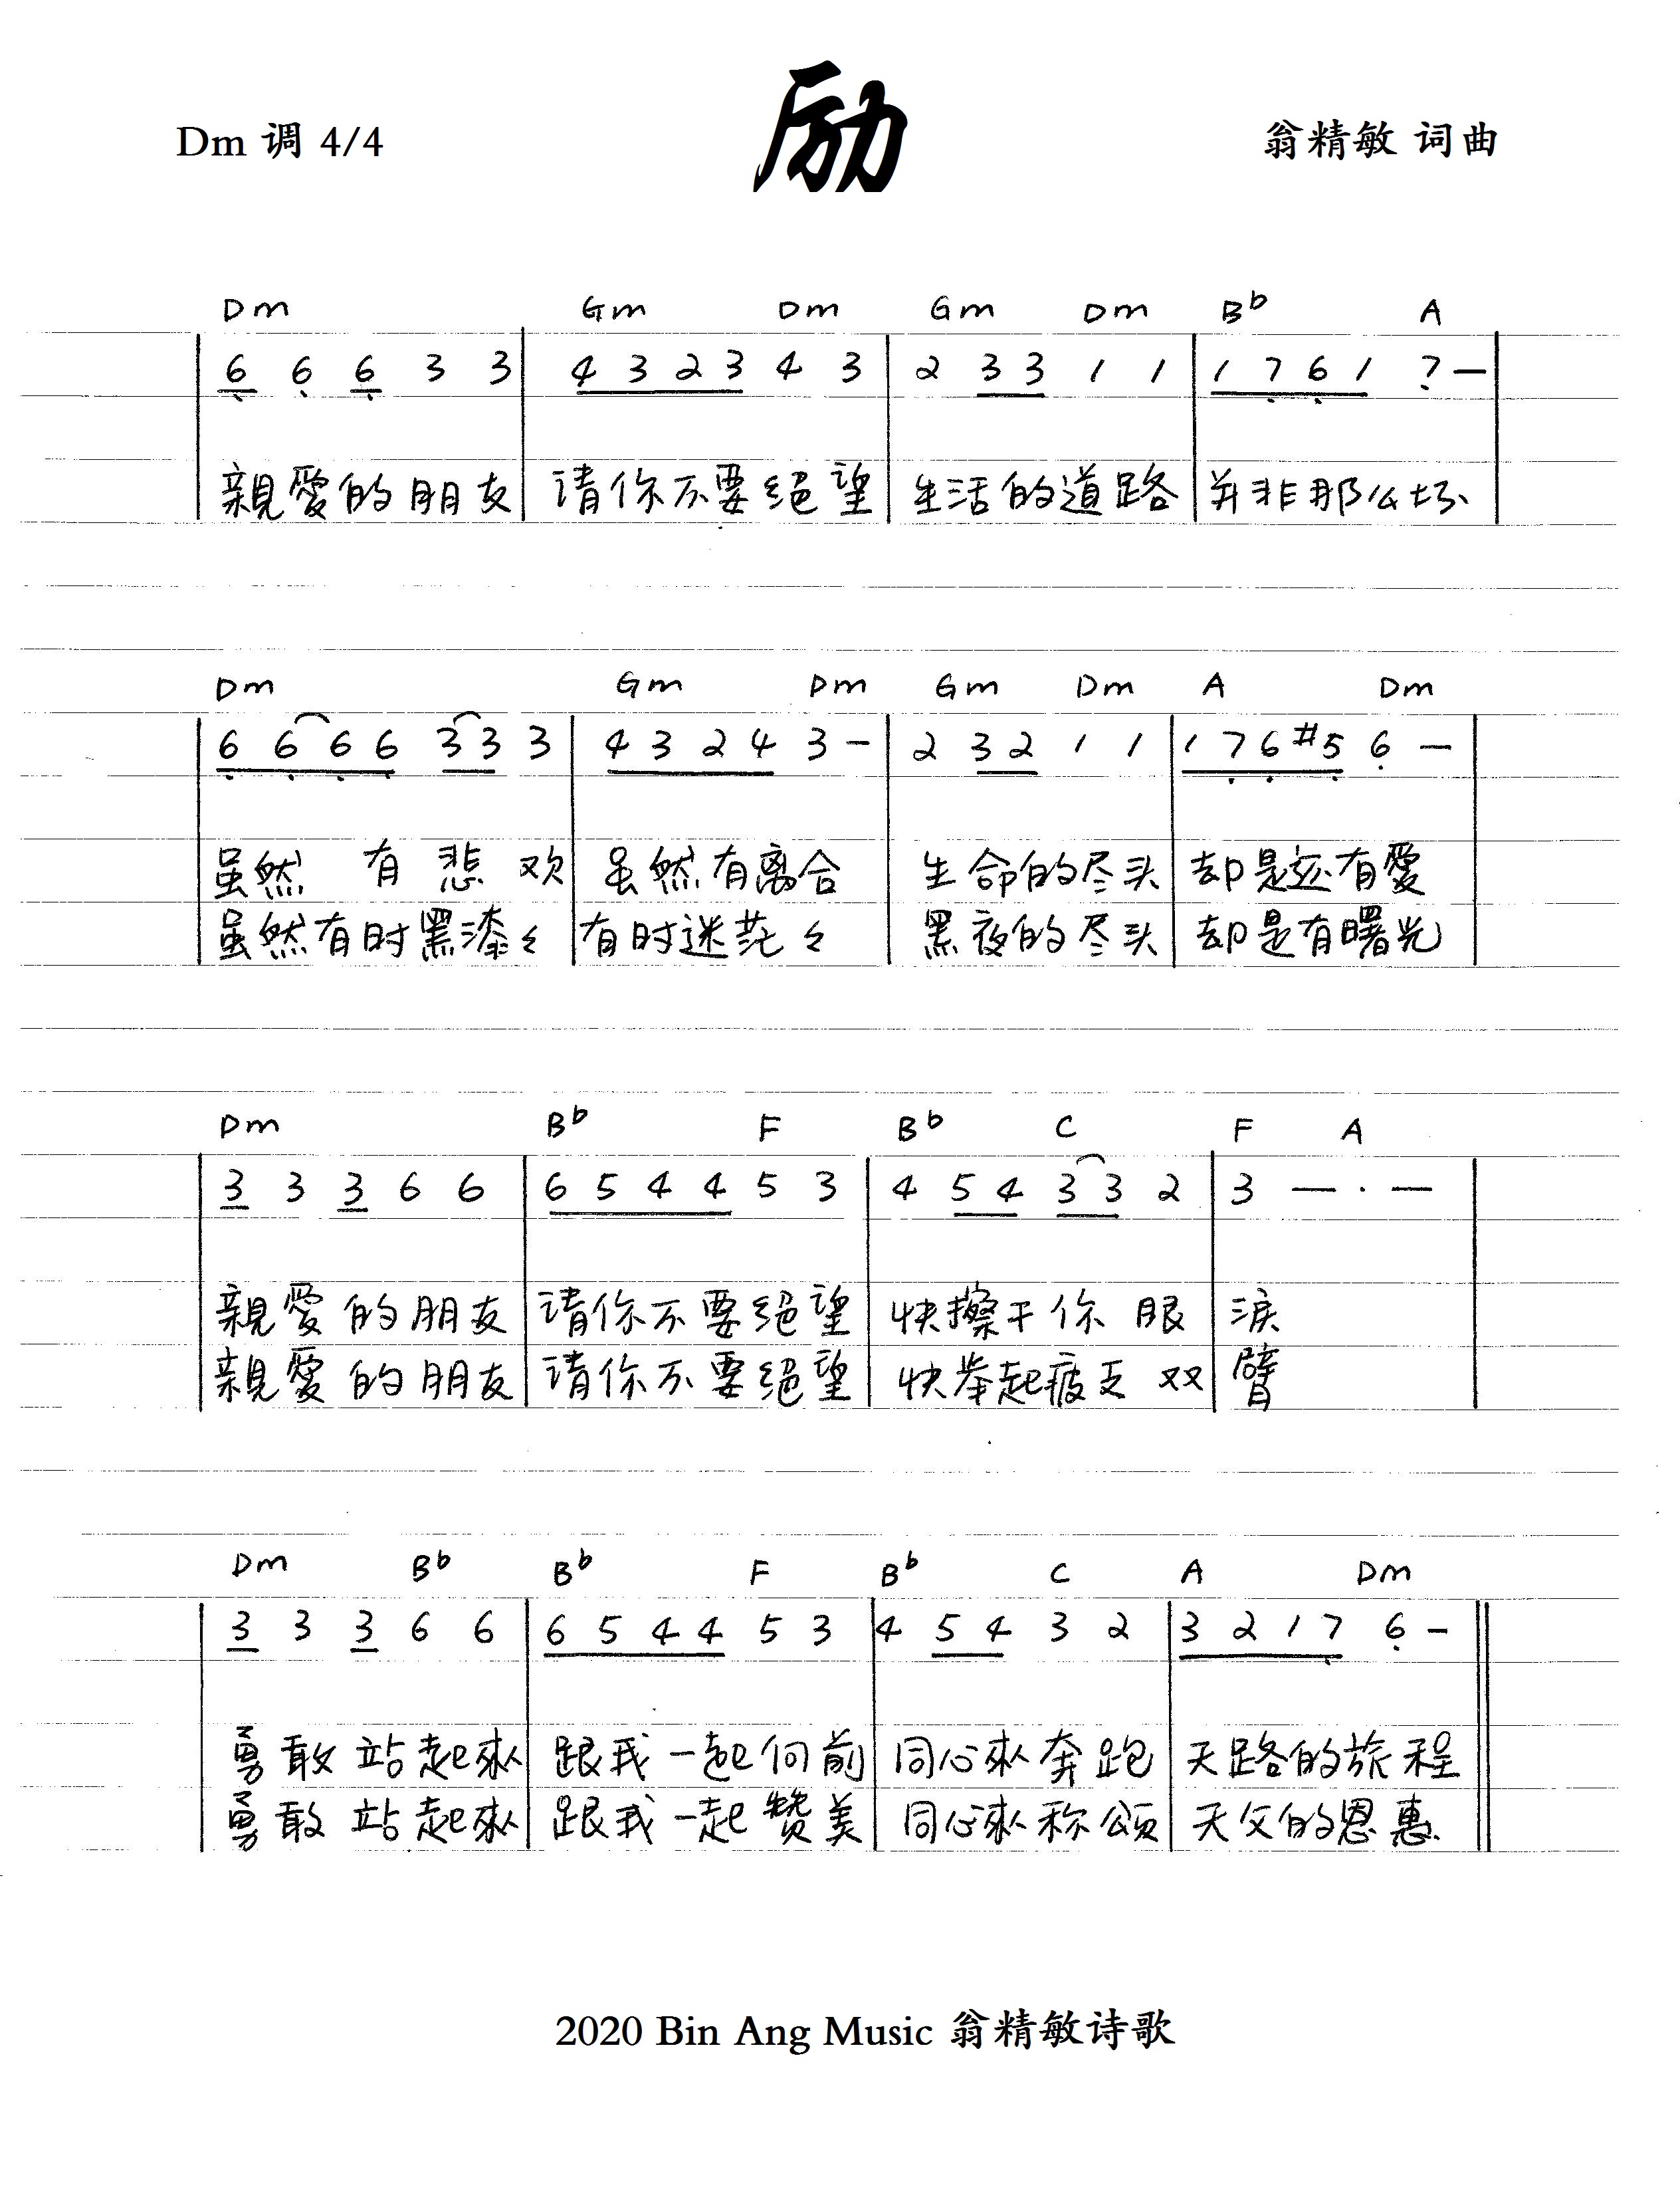 励
Dm 调 4/4
翁精敏 词曲
Dm Gm Dm Gm Dm Bb A
6 6 6 3 3 | 4 3 2 3 4 3 | 2 3 3 1 1 | 1 7 6 1 7 — |
親愛的朋友 请你不要绝望 生活的道路 并非那么坏
Dm Gm Dm Gm Dm A Dm
6 6 6 6 3 3 3 | 4 3 2 4 3 — | 2 3 2 1 1 | 1 7 6 #5 6 — |
虽然 有 悲 欢 虽然有离合 生命的尽头 却是还有愛
虽然有时黑漆々 有时迷茫々 黑夜的尽头 却是有曙光
Dm Bb F Bb C F A
3 3 3 6 6 | 6 5 4 4 5 3 | 4 5 4 3 3 2 | 3 — · — |
親愛的朋友 请你不要绝望 快擦干你 眼 淚
親愛的朋友 请你不要绝望 快举起疲乏 双 臂
Dm Bb Bb F Bb C A Dm
3 3 3 6 6 | 6 5 4 4 5 3 | 4 5 4 3 2 | 3 2 1 7 6 — ||
勇敢站起來 跟我一起向前 同心來奔跑 天路的旅程
勇敢站起來 跟我一起赞美 同心來称颂 天父的恩惠
2020 Bin Ang Music 翁精敏诗歌